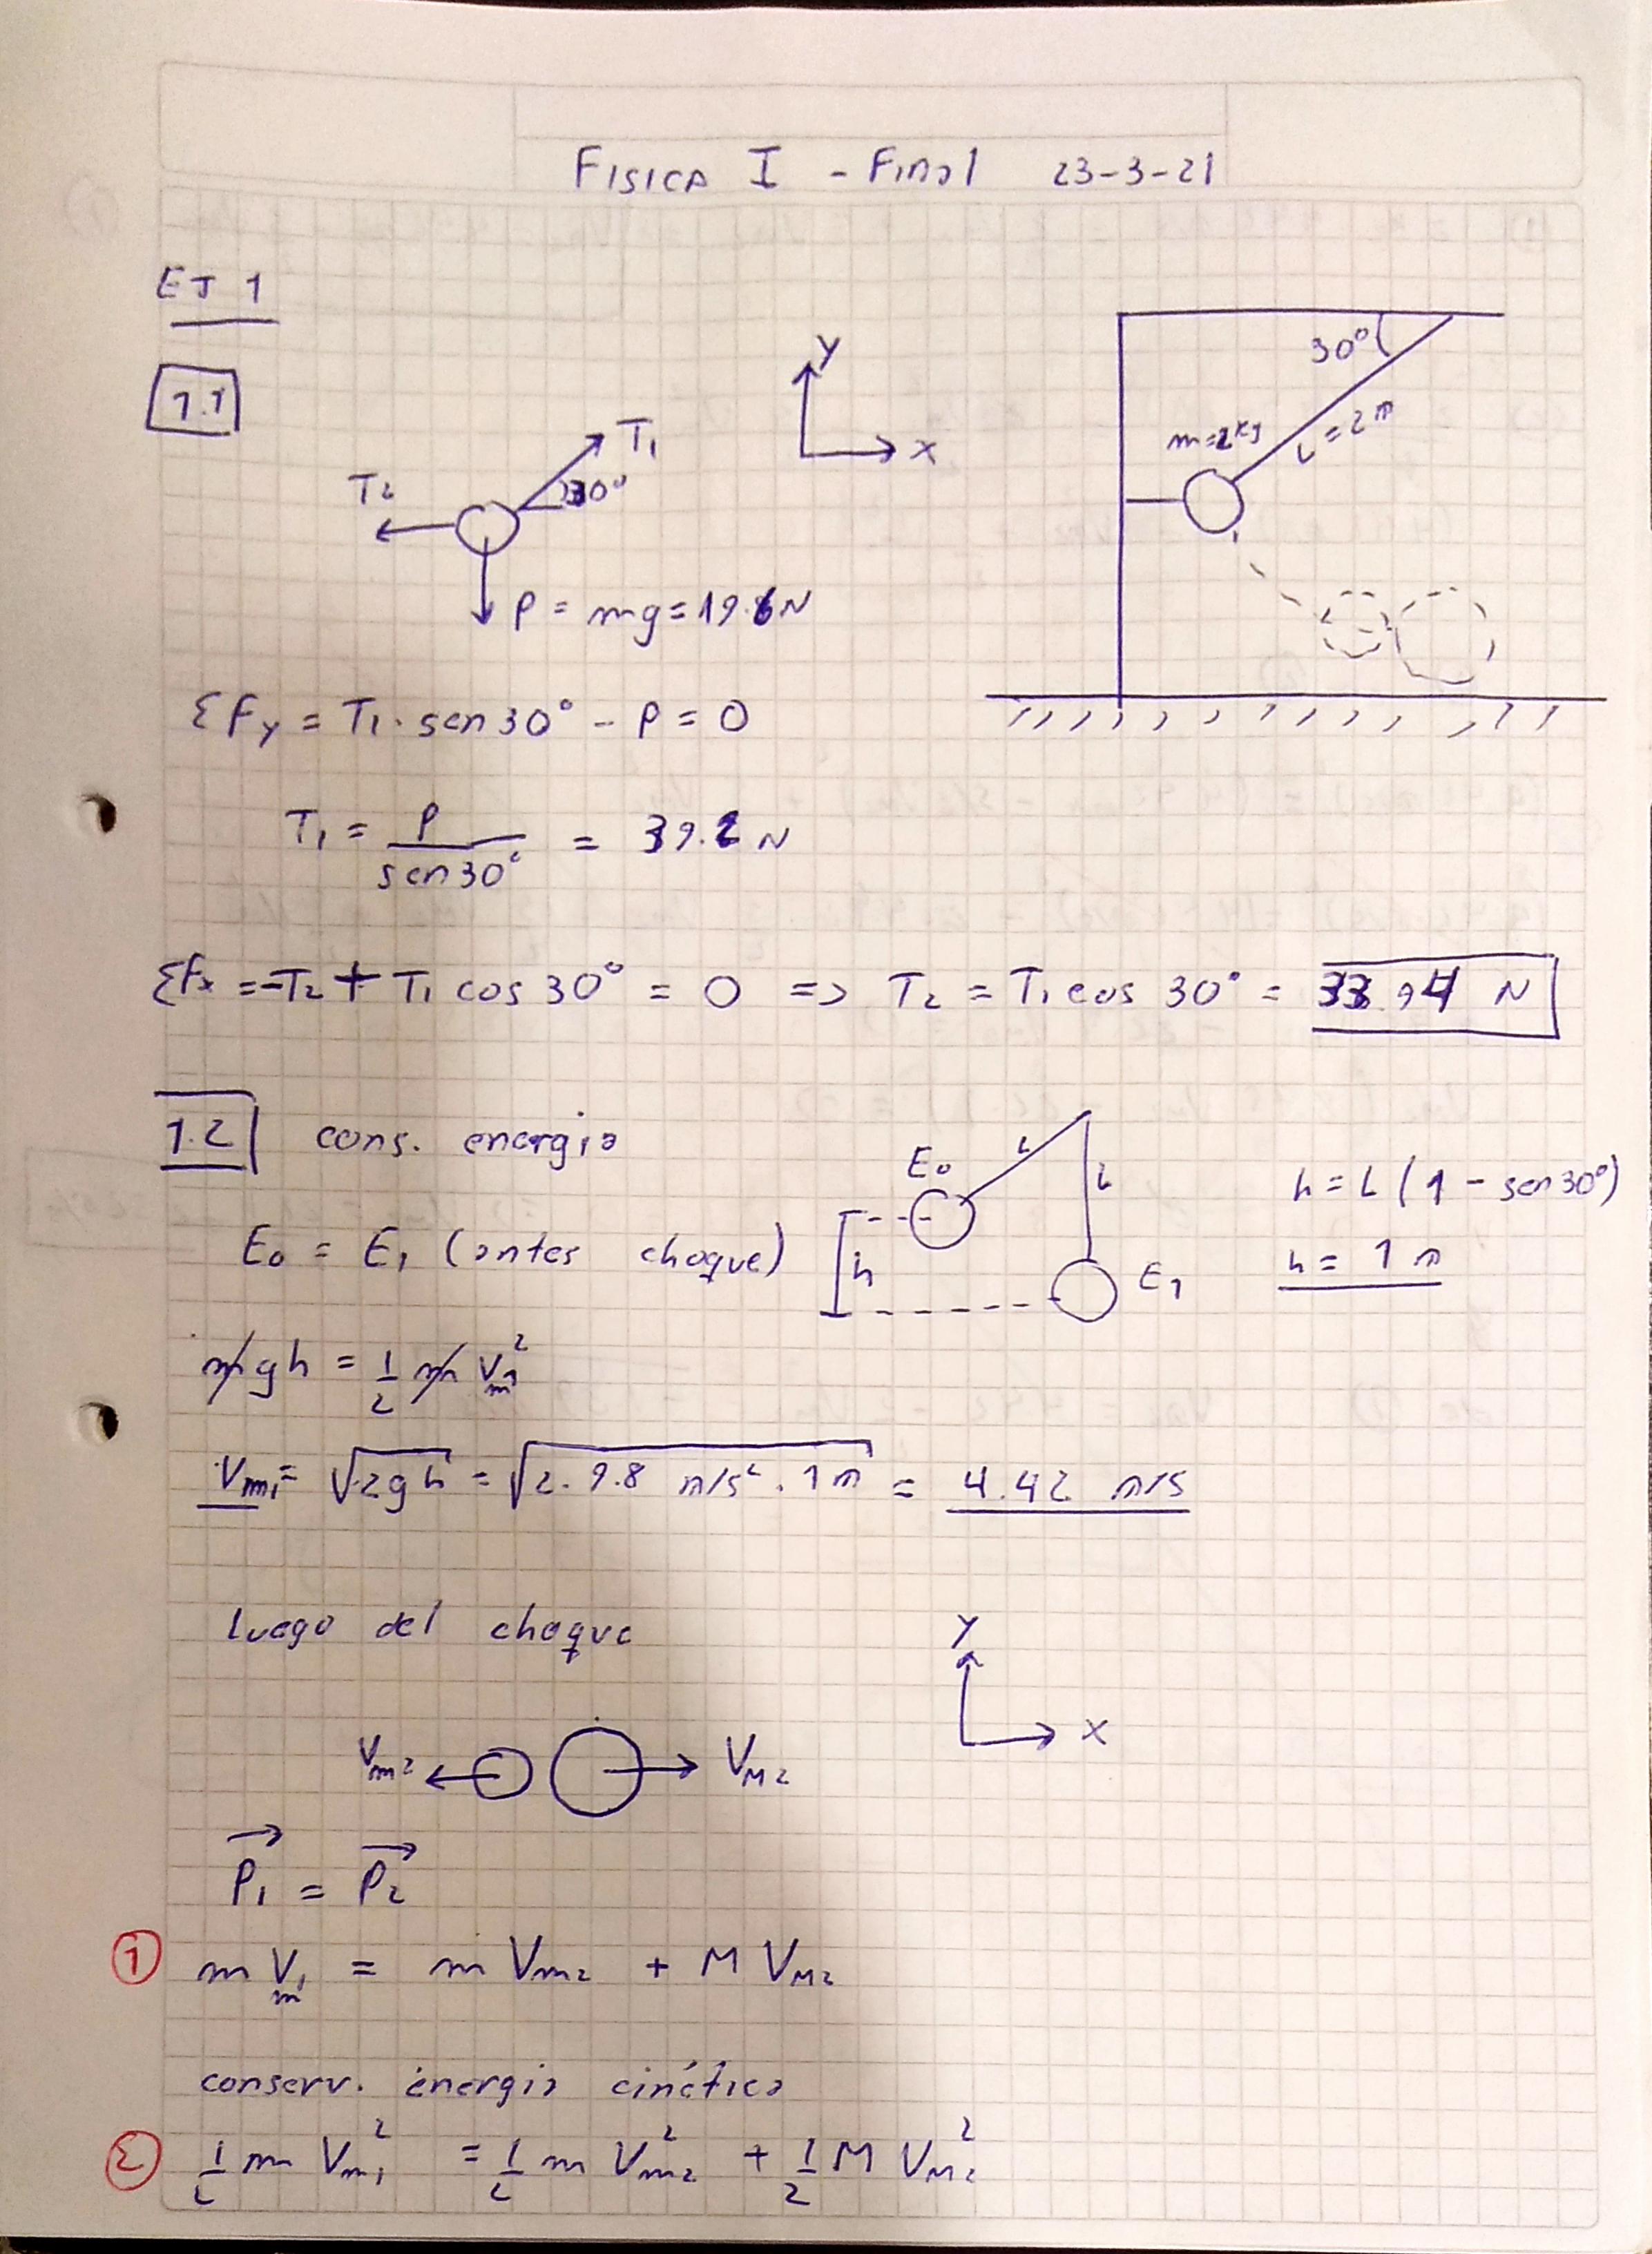 FISICA I - Final 23-3-21
EJ 1
1.1
y
x
T₁
30°
T₂
P = mg = 19.6 N
30°
m=2kg
L=2m
ΣFy = T₁ · sen 30° - P = 0
T₁ = P / sen 30° = 39.2 N
ΣFx = -T₂ + T₁ cos 30° = 0 => T₂ = T₁ cos 30° = 33.94 N
1.2 cons. energia
E₀ = E₁ (antes choque)
E₀
L
L
h
E₁
h = L (1 - sen 30°)
h = 1 m
mgh = 1/2 m Vm1²
Vm1 = √2gh = √2. 9.8 m/s² . 1m = 4.42 m/s
luego del choque
y
x
Vm2
VM2
P₁ = P₂
① m Vm1 = m Vm2 + M VM2
conserv. energia cinética
② 1/2 m Vm1² = 1/2 m Vm2² + 1/2 M VM2²